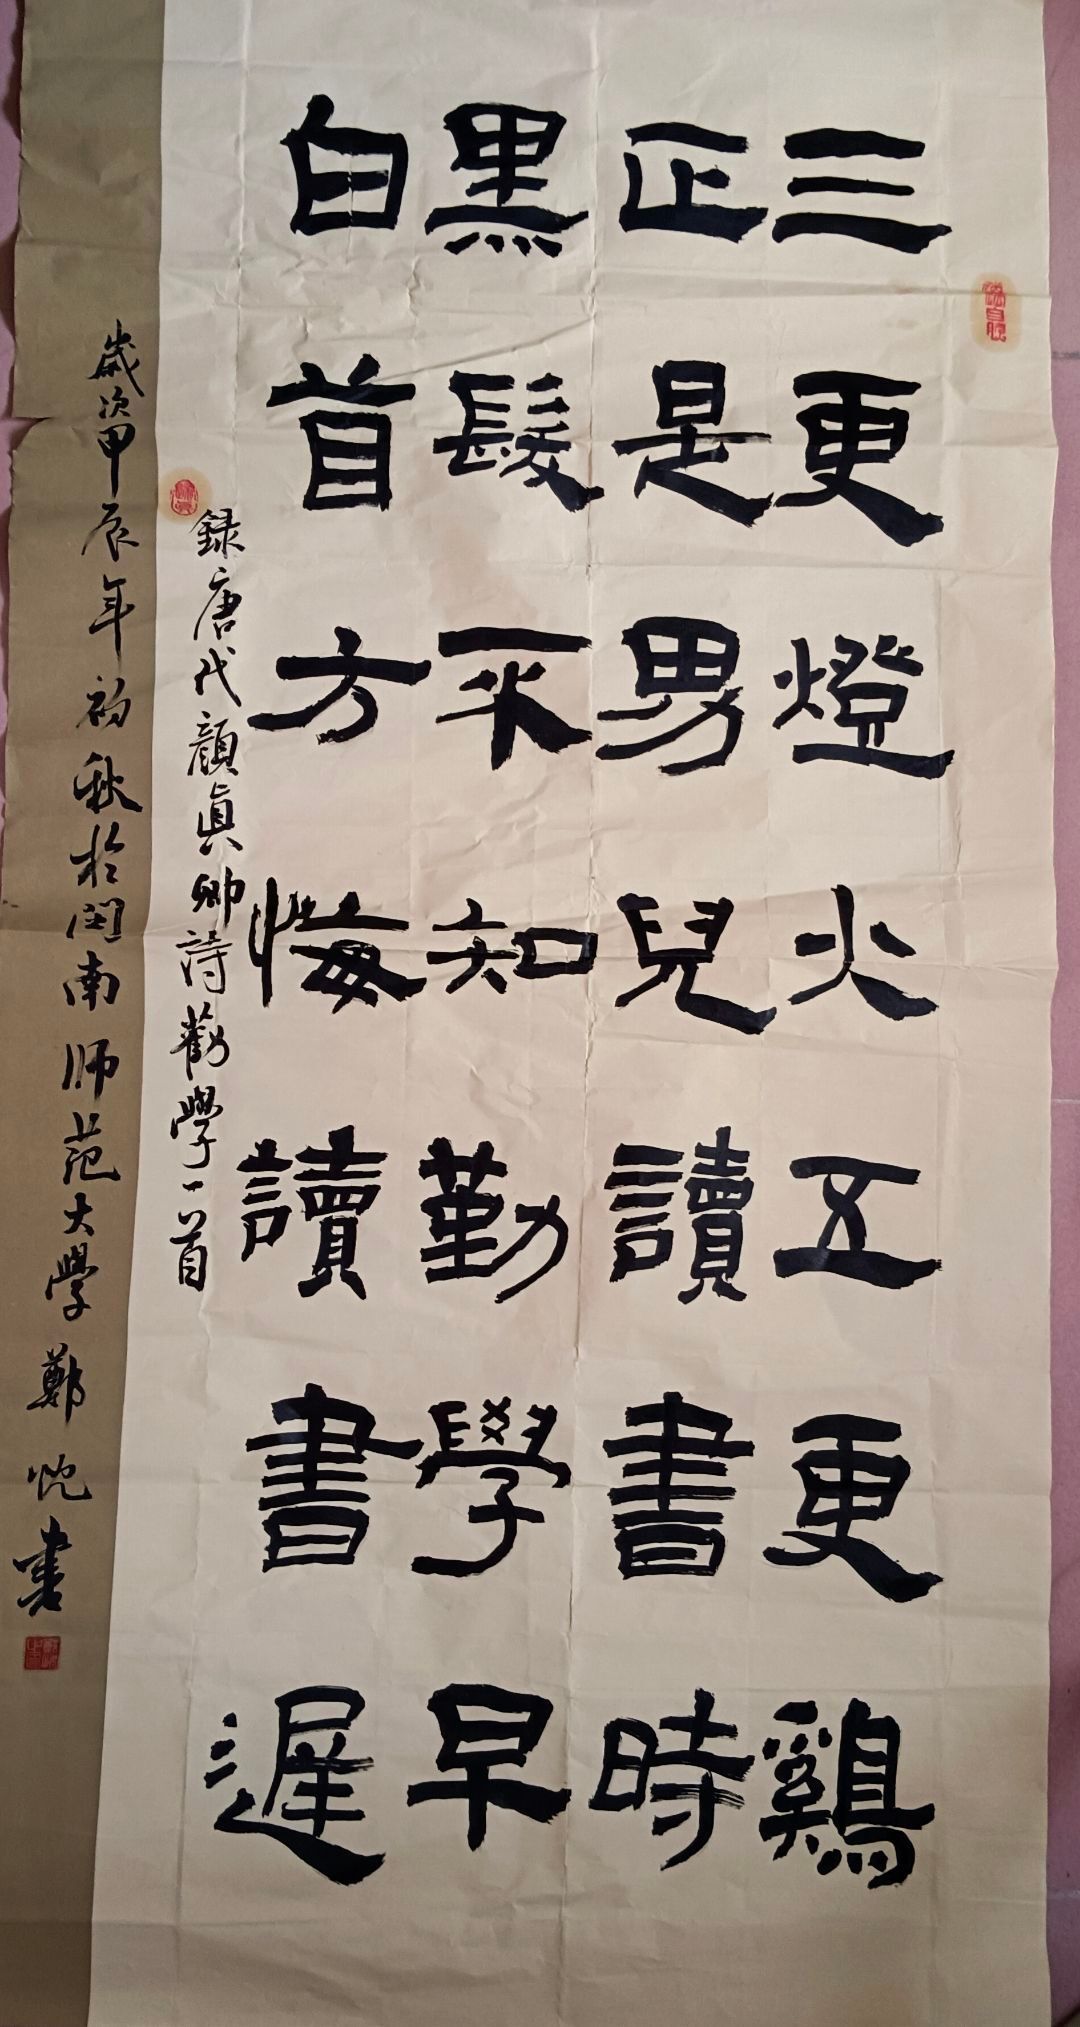 三更燈火五更鷄
正是男兒讀書時
黑髮不知勤學早
白首方悔讀書遲
録唐代顔真卿詩勸學一首
歲次甲辰年初秋於閩南师范大学鄭忱書